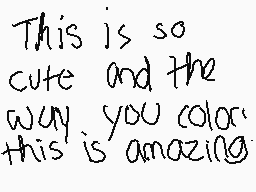 This is so
cute and the
way you color
this is amazing